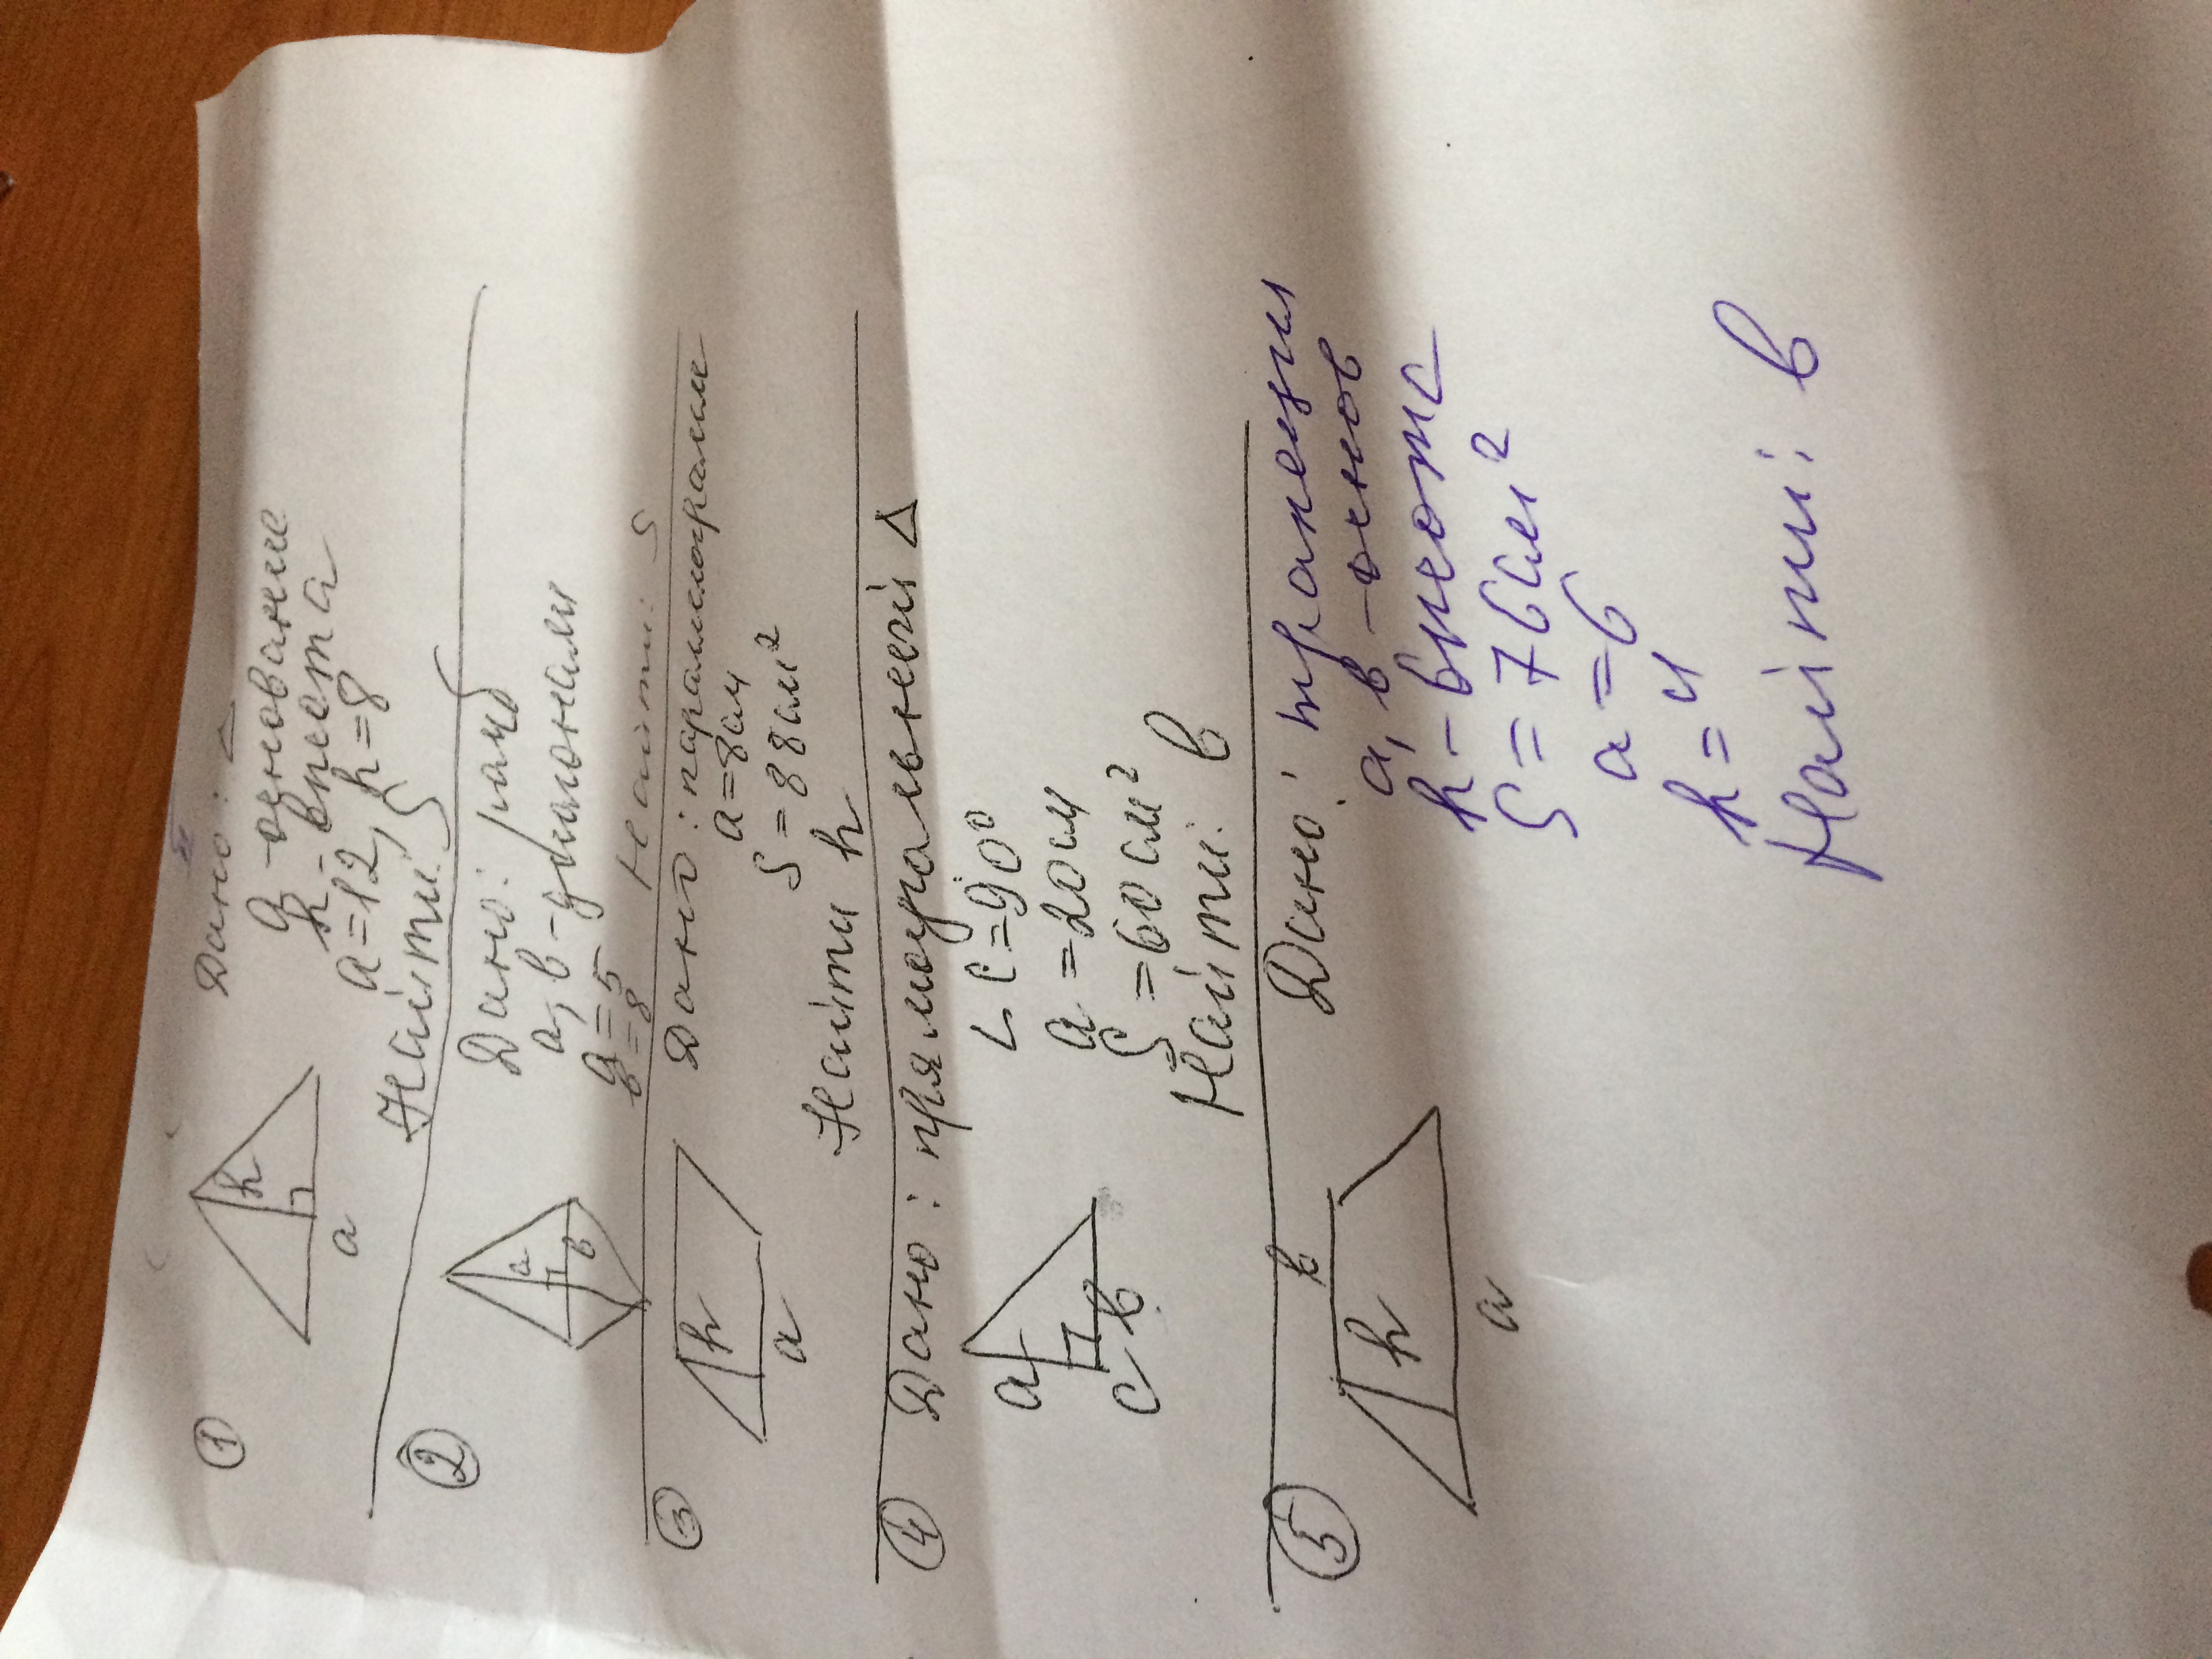 ① Дано: △
a - основание
h - высота
a = 12, h = 8
h
a
Найти: S
② Дано: ромб
a, в - диагонали
a = 5
в = 8
Найти: S
a
в
③ Дано: параллелограмм
a = 8 см
S = 88 см²
h
a
Найти h
④ Дано: прямоугольный △
∠C = 90°
a = 20 см
S = 60 см²
Найти: в
a
C в
⑤ Дано: трапеция
a, в - основ
h - высота
S = 76 см²
a = 6
h = 4
Найти: в
в
h
a